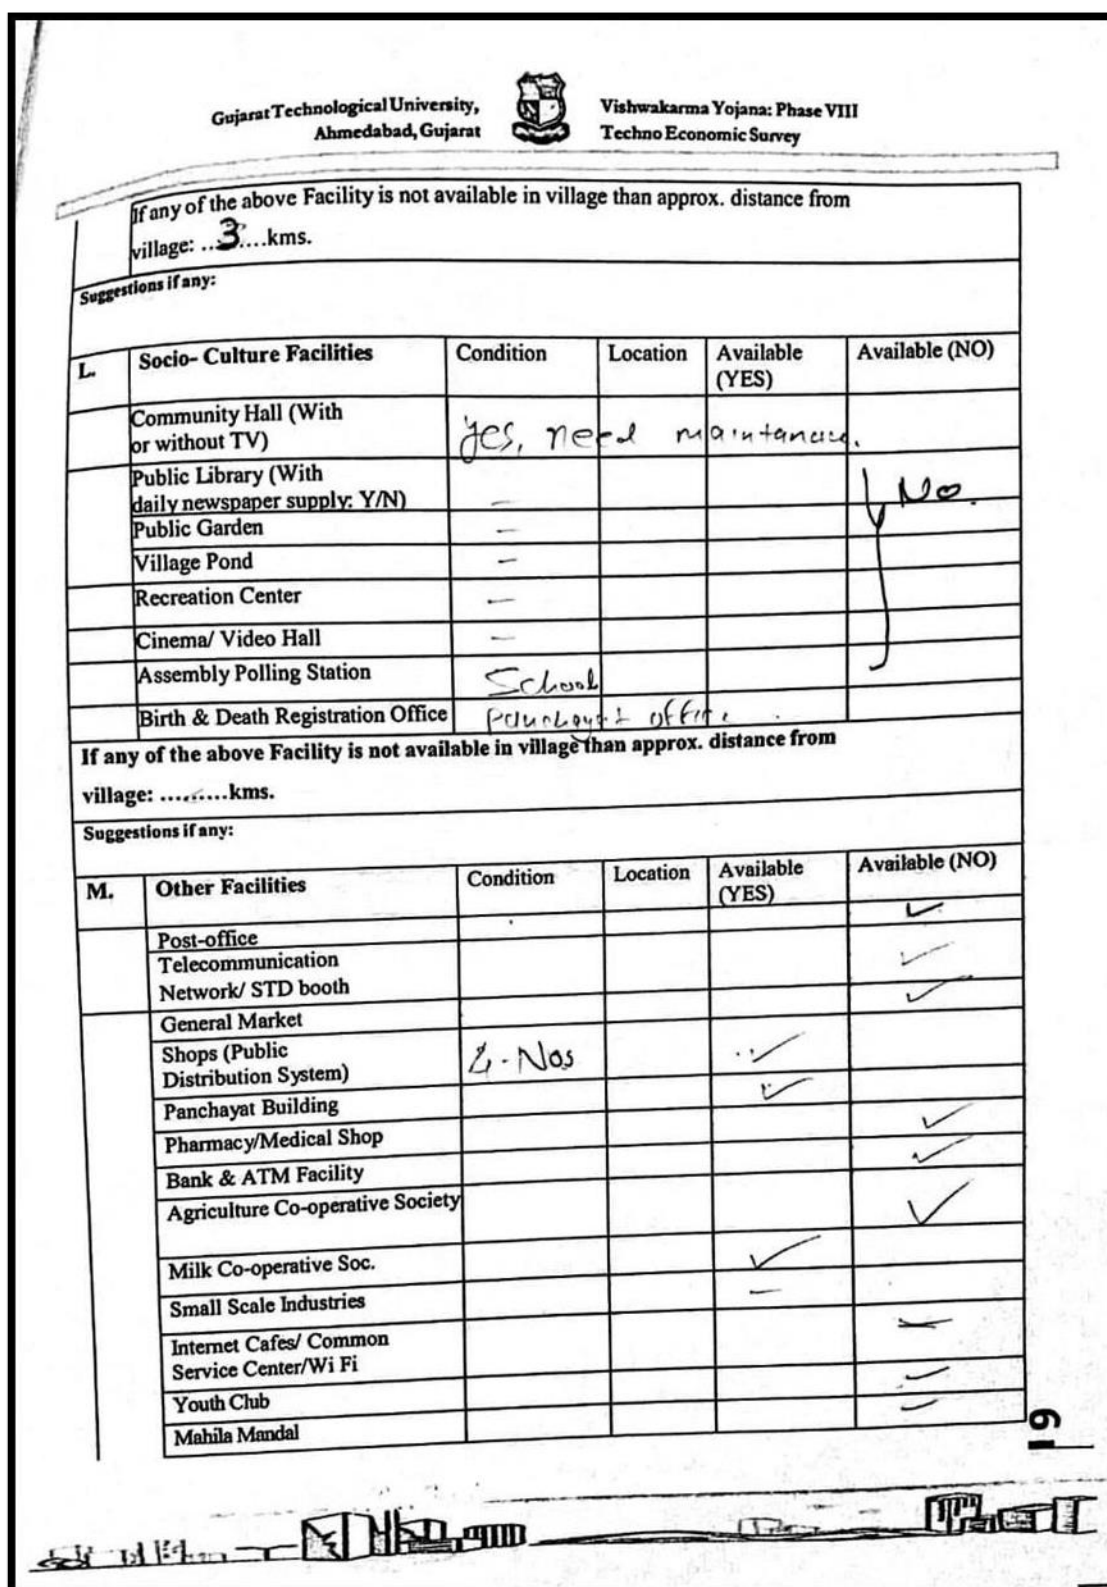 Gujarat Technological University,
Ahmedabad, Gujarat
Vishwakarma Yojana: Phase VIII
Techno Economic Survey
If any of the above Facility is not available in village than approx. distance from
village: ..3....kms.
Suggestions if any:
L. Socio- Culture Facilities Condition Location Available (YES) Available (NO)
Community Hall (With
or without TV) yes, need maintanance.
Public Library (With
daily newspaper supply: Y/N) – No.
Public Garden –
Village Pond –
Recreation Center –
Cinema/ Video Hall –
Assembly Polling Station School
Birth & Death Registration Office Panchayat office
If any of the above Facility is not available in village than approx. distance from
village: .........kms.
Suggestions if any:
M. Other Facilities Condition Location Available (YES) Available (NO)
Post-office ✓
Telecommunication
Network/ STD booth ✓
General Market ✓
Shops (Public
Distribution System) - Nos ✓
Panchayat Building ✓
Pharmacy/Medical Shop ✓
Bank & ATM Facility ✓
Agriculture Co-operative Society ✓
Milk Co-operative Soc. ✓
Small Scale Industries –
Internet Cafes/ Common
Service Center/Wi Fi
Youth Club ✓
Mahila Mandal ✓
19